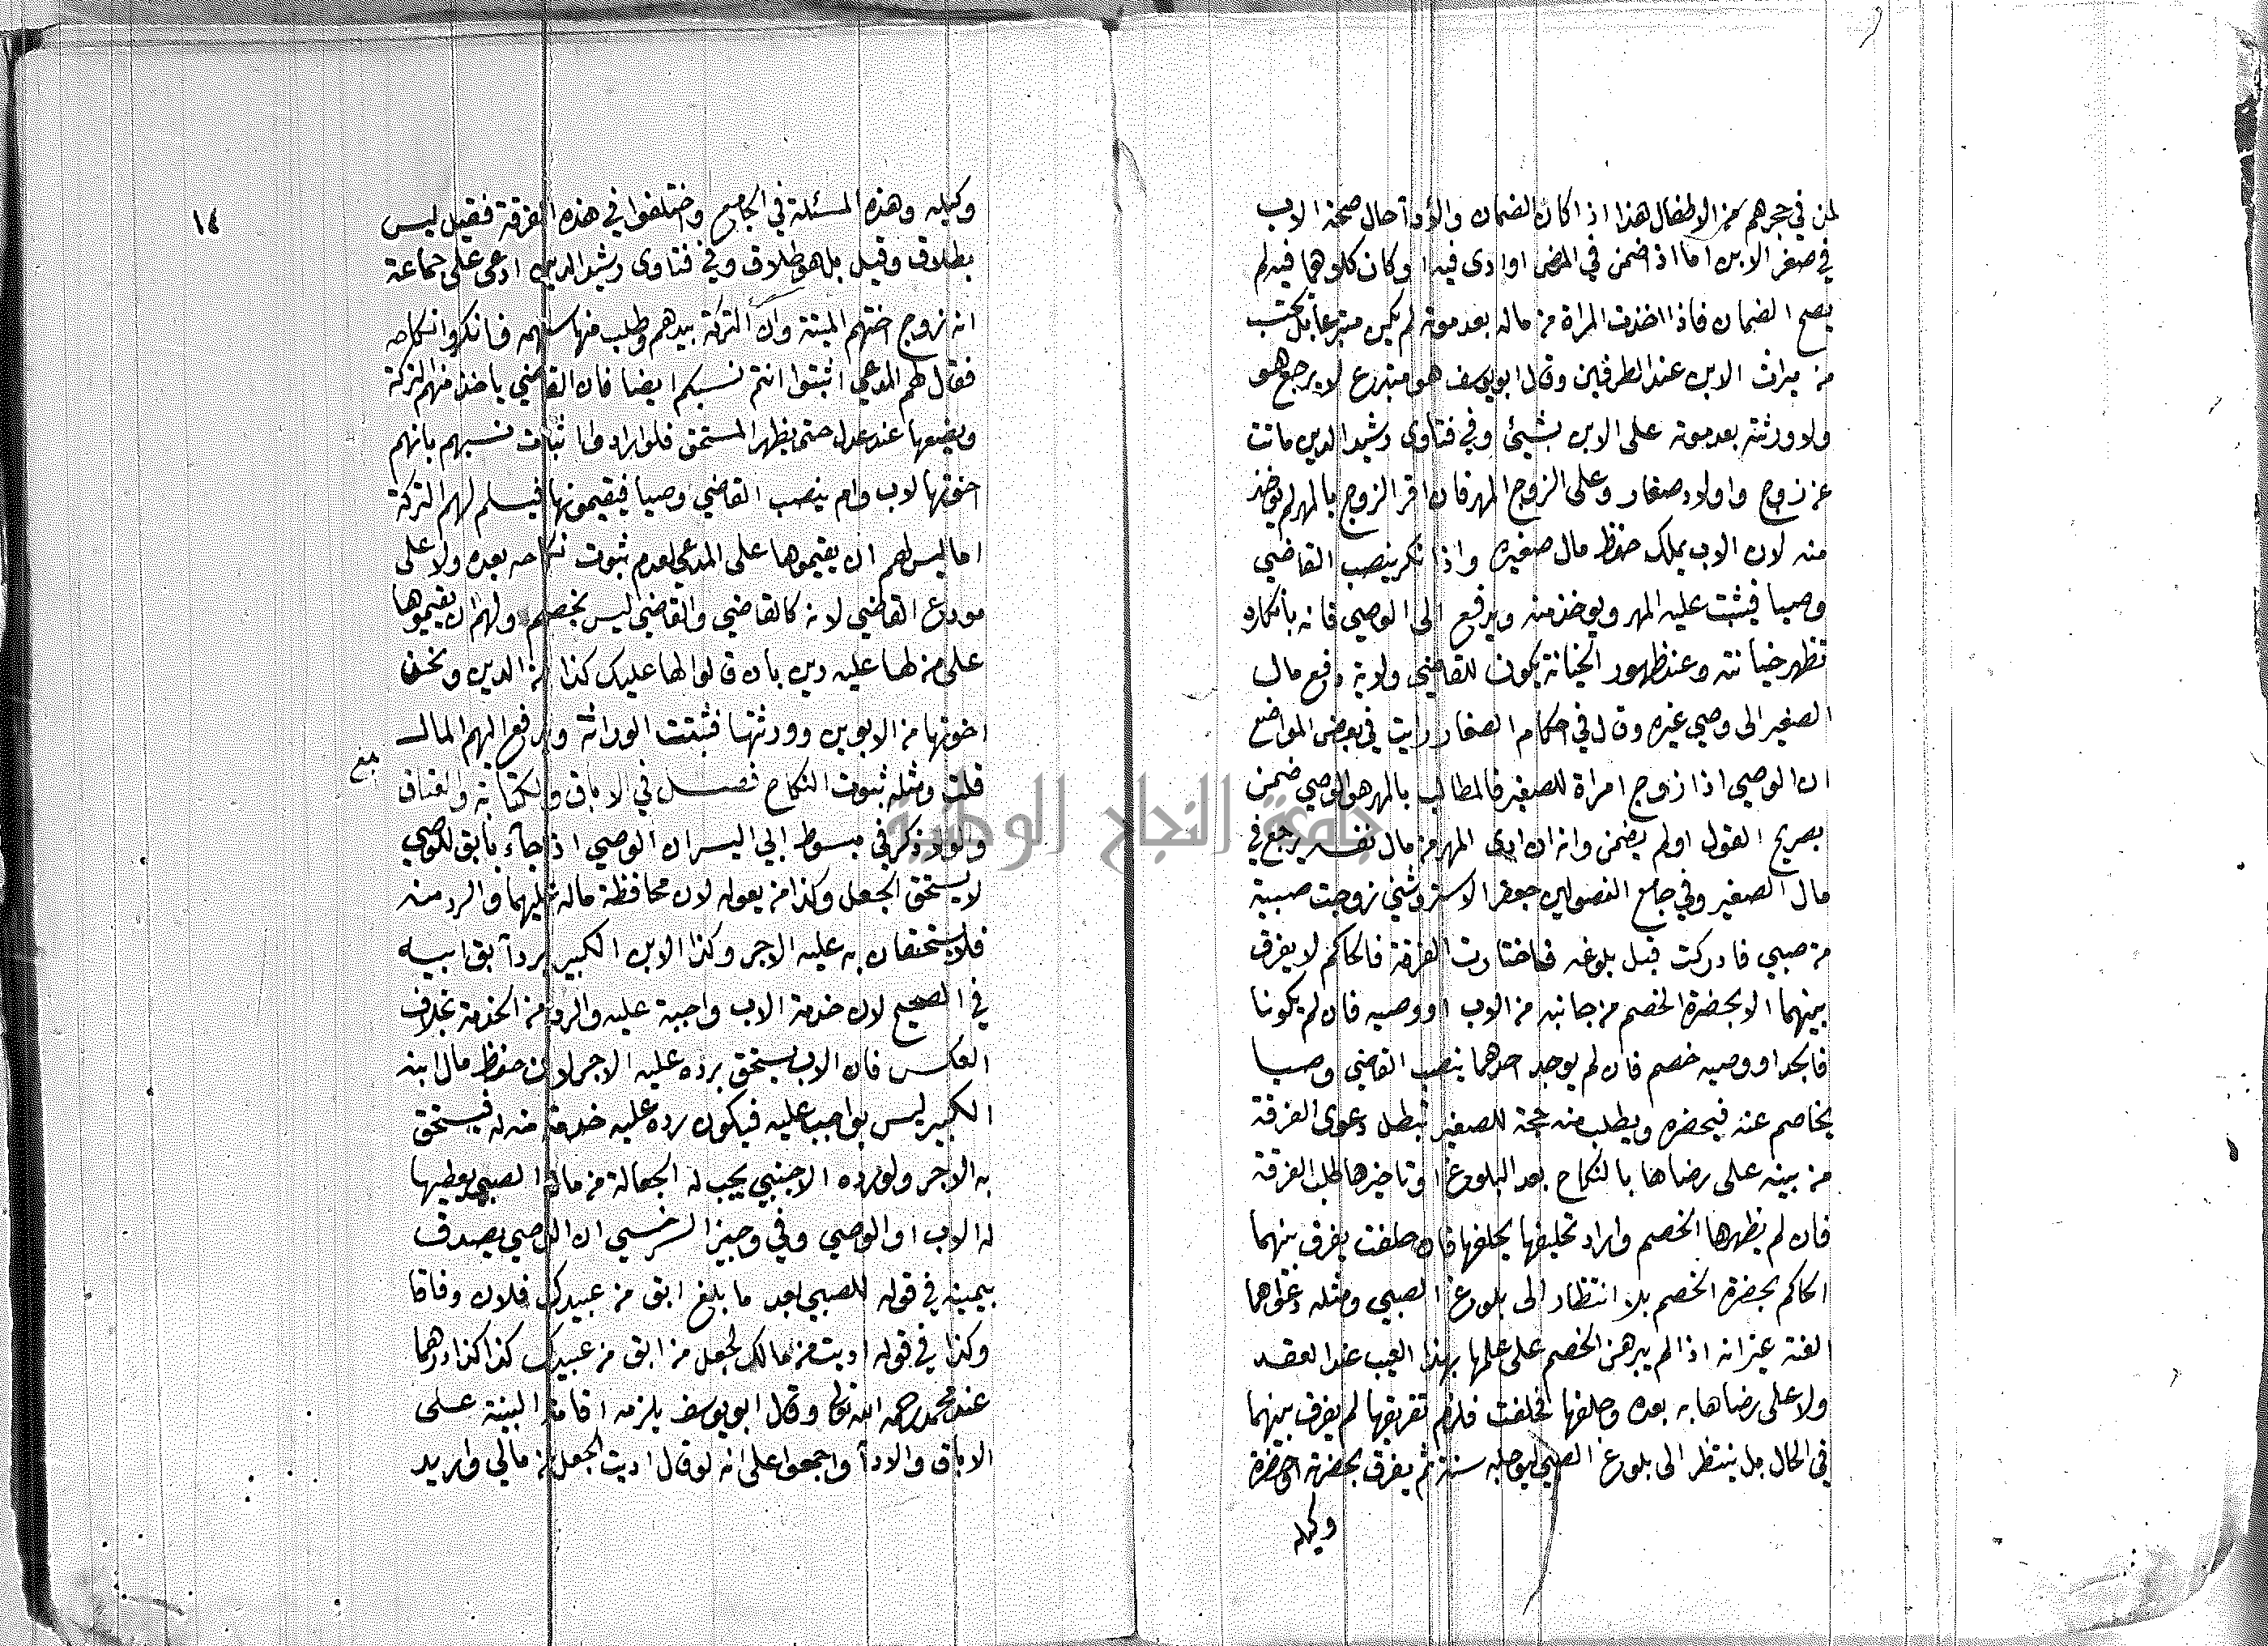 لمن في حجرهم من الاطفال هذا اذا كان الضمان والأدآ حال صحة الاب
في صغر الابن اما اذا ضمن في المرض او ادى فيه او كان كلاهما فيه لم
يصح الضمان فاذا اخذت المراة من ماله بعد موته لم يكن متبرعا بل يحتسب
من ميراث الابن عند الطرفين وقال ابو يوسف هو متبرع لا يرجع هو
ولا ورثته بعد موته على الابن بشيئ وفي فتاوى رشيد الدين ماتت
عن زوج واولاد صغار وعلى الزوج المهر فان اقر الزوج بالمهر لم يوخذ
منه لان الاب يملك حفظ مال صغيره واذا انكر ينصب القاضي
وصيا فيثبت عليه المهر ويوخذ منه ويدفع الى الوصي فانه بانكاره
تظهر خيانته وعند ظهور الخيانة يكون للقاضي ولاية دفع مال
الصغير الى وصي غيره وقال في احكام الصغار رايت في بعض المواضع
ان الوصي اذا زوج امراة للصغير فالمطالب بالمهر هو الوصي ضمن
بصريح القول اولم يضمن وانه ان ادى المهر من مال نفسه يرجع في
مال الصغير وفي جامع الفصولين جعفر الاستروشني زوجت صبية
من صبي فادركت قبل بلوغه فاختارت الفرقة فالحاكم لا يفرق
بينهما الا بحضرة الخصم من جانبه من الاب او وصيه فان لم يكونا
فالجد او وصيه خصم فان لم يوجد احدهما ينصب القاضي وصيا
يخاصم عنه فيحضره ويطلب منه حجة للصغير تبطل دعوى الفرقة
من بينه على رضاها بالنكاح بعد البلوغ او تاخيرها طلب الفرقة
فان لم يظهرها الخصم واراد تحليفها يحلفها فان حلفت يفرق بينهما
الحاكم بحضرة الخصم بلا انتظار الى بلوغ الصبي ومثله دعواها
العنة غير انه اذا لم يبرهن الخصم على علمها بهذا العيب عند العقد
ولا على رضاها به بعده وحلفها فحلفت فلزم تفريقها لم يفرق بينهما
في الحال بل ينتظر الى بلوغ الصبي ليوجله سنة ثم يفرق بحضرته او حضرة
وكيله
١٤
وكيله وهذه المسئلة في الجامع واختلفوا في هذه الفرقة فقيل ليس
بطلاق وقيل بل هو طلاق وفي فتاوى رشيد الدين ادعى على جماعة
انه زوج اختهم الميتة وان التركة بيدهم وطلب منها سهمه فانكروا نكاحه
فقال لهم المدعي اثبتوا انتم نسبكم ايضا فان القاضي ياخذ منهم التركة
ويضعها عند عدل حتى يظهر المستحق فلو ارادوا اثبات نسبهم بانهم
اخوتها لاب وام ينصب القاضي وصيا فيقيمونها فيسلم لهم التركة
اما ليس لهم ان يقيموها على المدعي لعدم ثبوت نكاحه بعده ولا على
مودع القاضي لانه كالقاضي والقاضي ليس بخصم ولهم ان يقيموها
على من لها عليه دين بان قالوا لها عليك كذا من الدين ونحن
اخوتها من الابوين وورثتها فثبتت الوراثة ويدفع اليهم المال
قلت ومثله ثبوت النكاح فصل في الاباق والكتابة والعتاق
والولاء ذكر في مبسوط ابي اليسر ان الوصي اذا جاء بابق للموصي
لا يستحق الجعل وكذا من يعوله لان محافظة ماله عليهما والرد منه
فلا يستحقان به عليه الاجر وكذا الابن الكبير برد آبق ابيه
في الصحيح لان خدمة الاب واجبة عليه والرد من الخدمة بخلاف
العكس فان الاب يستحق برده عليه الاجر لان حفظ مال ابنه
الكبير ليس بواجب عليه فيكون رده عليه خدمة منه له فيستحق
به الاجر ولو رده الاجنبي يجب له الجعالة من مال الصبي يعطيها
له الاب او الوصي وفي وجيز السرخسي ان الوصي يصدق
بيمينه في قوله للصبي بعد ما بلغ ابق من عبيدك فلان وفاقا
وكذا في قوله اديت من مالك لجعل من ابق من عبيدك كذا كذا درهما
عند محمد رحمه الله تعالى وقال ابو يوسف يلزمه اقامة البينة على
الاباق والادآ واجمعوا على انه لو قال اديت الجعل من مالي واريد
جامعة النجاح الوطنية